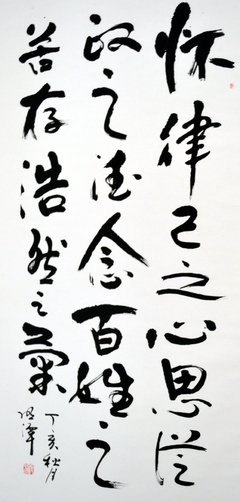 怀律己之心思從
政之德念百姓之
苦存浩然之氣
丁亥秋月